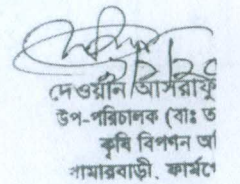 দেওয়ান আসরাফু
উপ-পরিচালক (বাঃ ত
কৃষি বিপণন অ
খামারবাড়ী, ফার্মগে